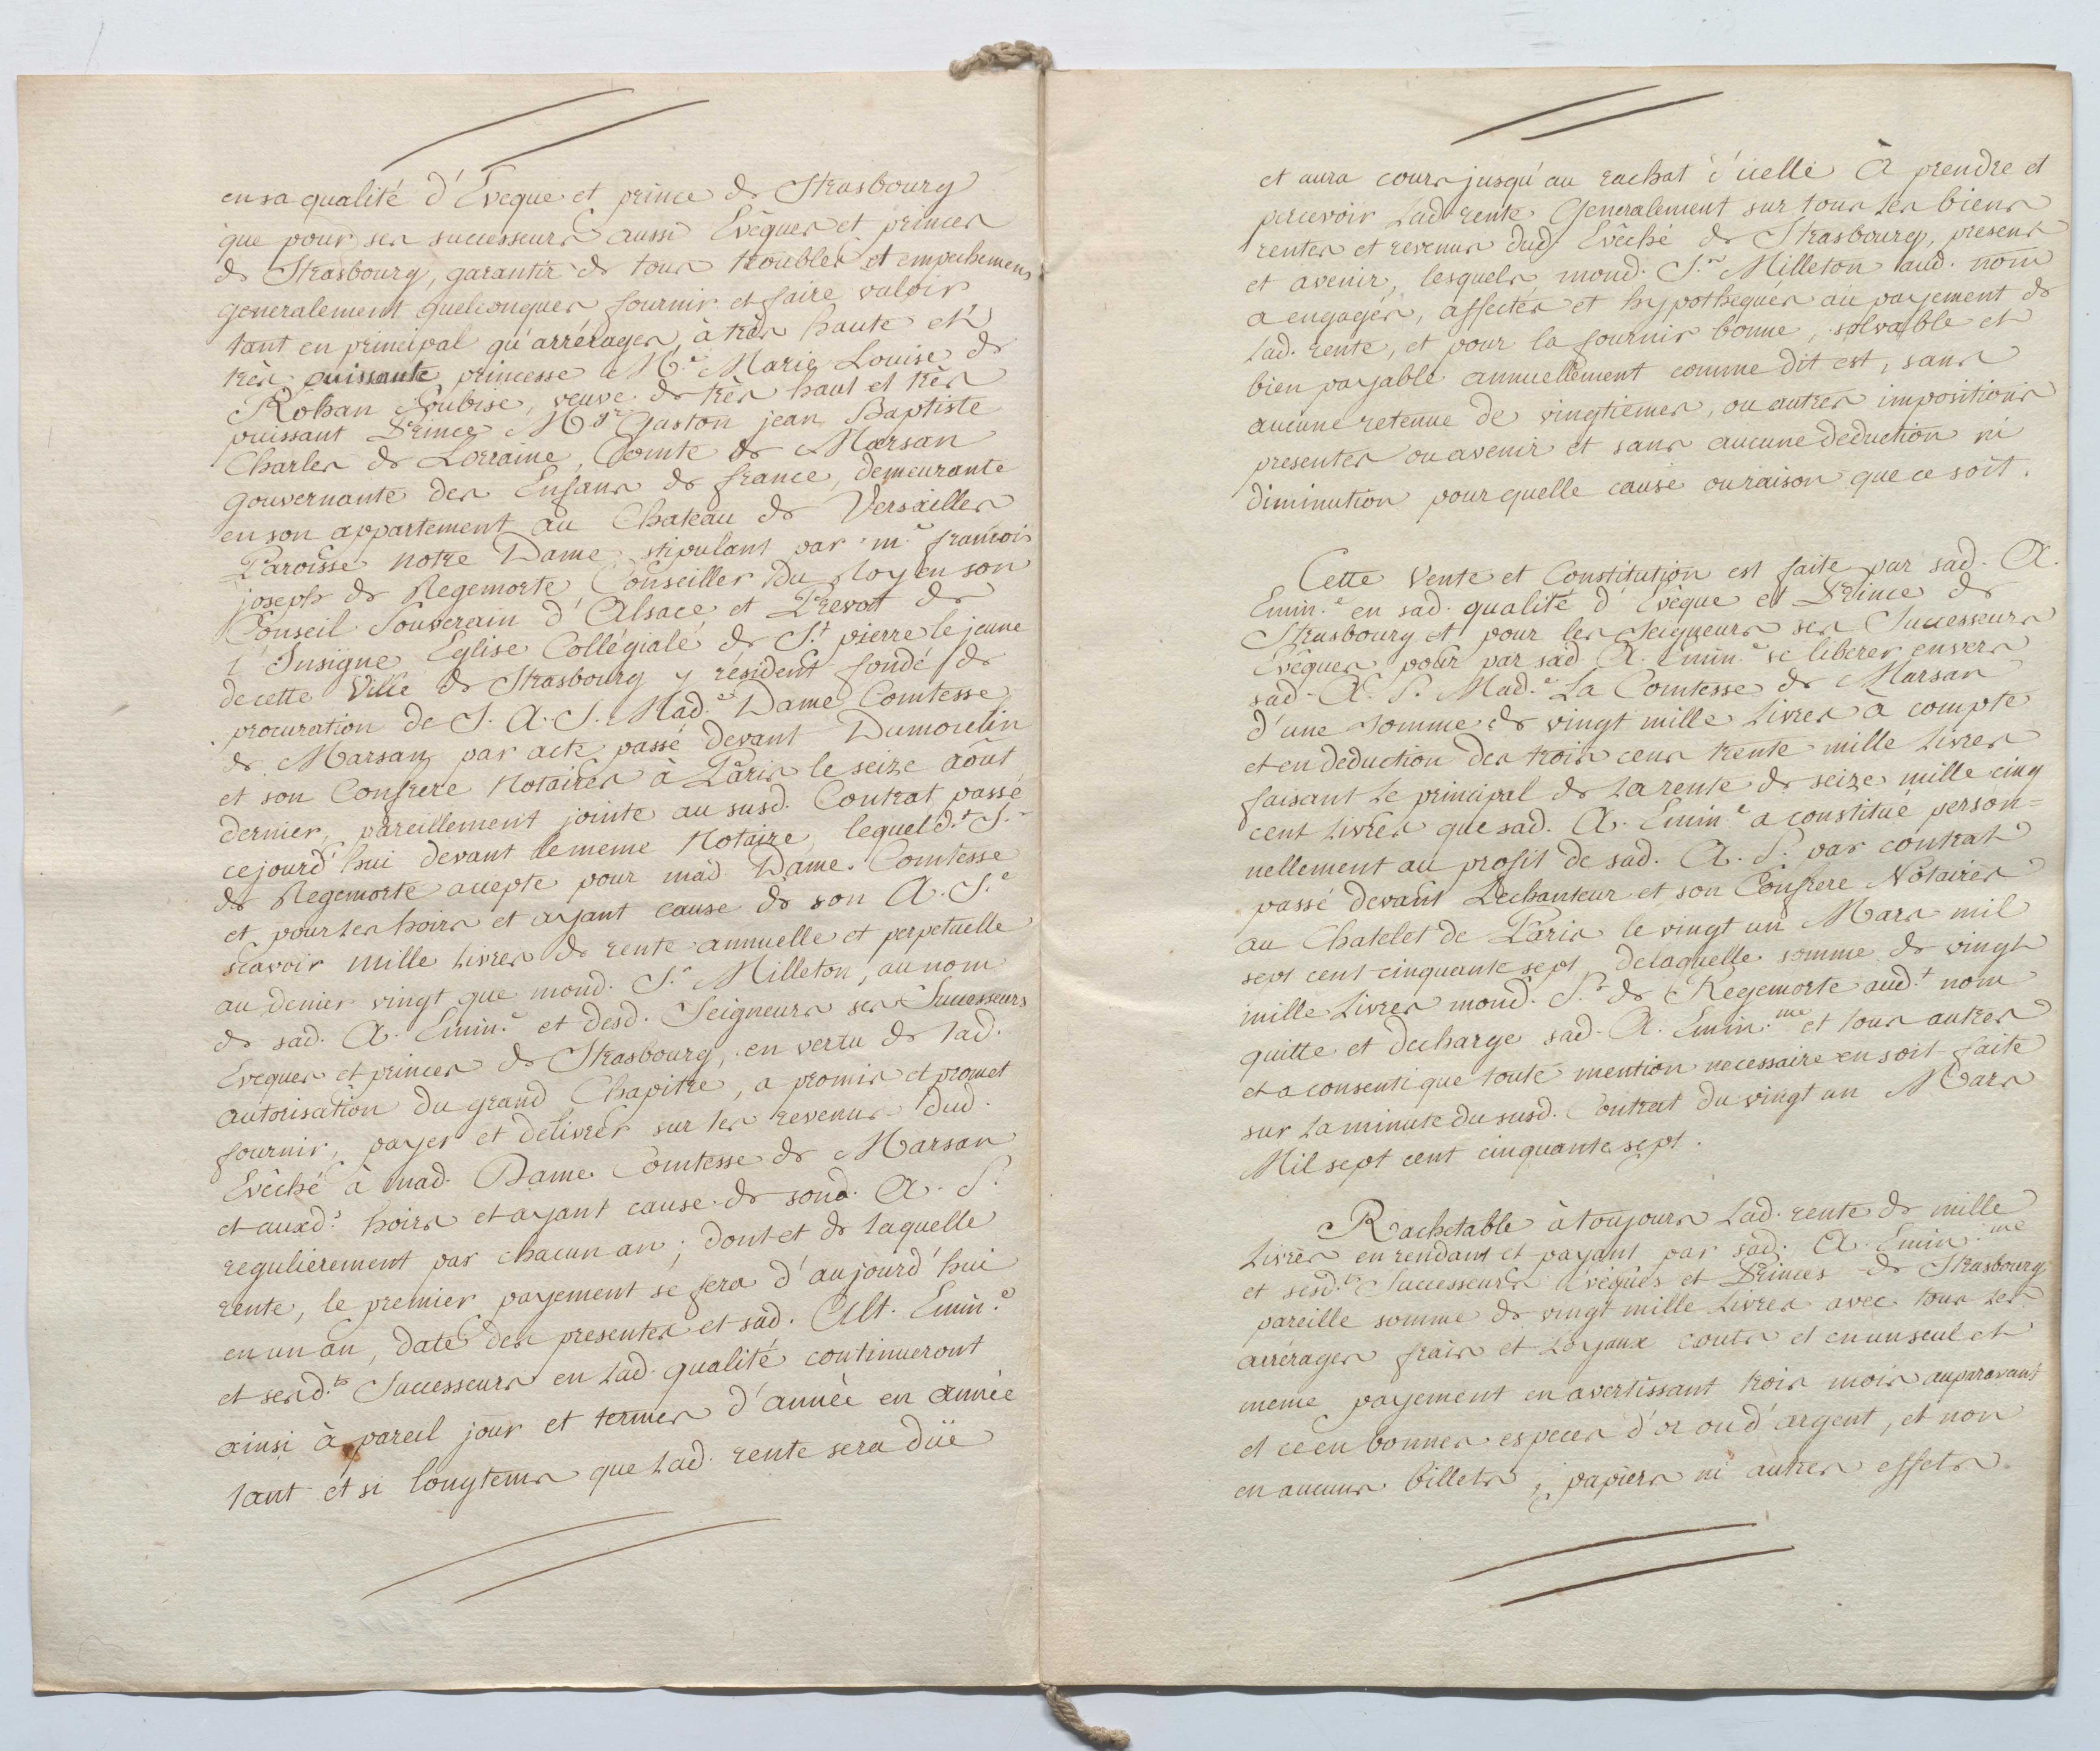 en sa qualité d'Eveque et prince de Strasbourg
que pour ses successeurs aussi Evêques et princes
de Strasbourg, garantir de tous troubles et empechemens
generalement quelconques fournir et faire valoir
tant en principal qu'arrérages, à très haute et
très puissante princesse M.e Marie Louise de
Rohan Soubise, veuve de très haut et très
puissant Prince Mgr Gaston jean Baptiste
Charles de Lorraine, Comte de Marsan
gouvernante des Enfans de france, demeurante
en son appartement au Chateau de Versailles
Paroisse notre Dame, stipulant par m.e françois
joseph de Regemorte, Conseiller du Roy en son
Conseil Souverain d'Alsace et Prevot de
l'Insigne Eglise Collégiale de S.t pierre le jeune
de cette Ville de Strasbourg y résident fondé de
procuration de S. A. S. Mad.e Dame Comtesse
de Marsan par acte passé devant Dumoulin
et son Confrere Notaires à Paris le seize août
dernier, pareillement jointe au susd. Contrat passé
cejourd'hui devant le meme Notaire, lequel d.t S.r
de Regemorte accepte pour mad Dame Comtesse
et pour les hoirs et ayant cause de son A. S.e
scavoir mille livres de rente annuelle et perpetuelle
au denier vingt que mond. S.r Milleton, au nom
de sad. A. Emin.e et desd. Seigneurs ses Successeurs
Eveques et princes de Strasbourg, en vertu de lad.
autorisation du grand Chapitre, a promis et promet
fournir, payer et delivrer sur les revenus dud.
Evêché à mad. Dame Comtesse de Marsan
et auxd.s hoirs et ayant cause de sond. A. S.
regulierement par chacun an ; dont et de laquelle
rente, le premier payement se fera d'aujourd'hui
en un an, date des presentes et sad. Alt. Emin.e
et sesd.ts Successeurs en lad. qualité continueront
ainsi à pareil jour et termes d'année en année
tant et si longtems que lad. rente sera düe
et aura cours jusqu'au rachat d'icelle à prendre et
percevoir lad. rente generalement sur tous les biens
rentes et revenus dud. Evêché de Strasbourg, presens
et avenir, lesquels mond. S.r Milleton aud. nom
a engagés, affectés et hypothequés au payement de
lad. rente, et pour la fournir bonne, solvable et
bien payable annuellement comme dit est, sans
aucune retenue de vingtiemes, ou autres impositions
presentes ou avenir et sans aucune deduction ni
diminution pour quelle cause ou raison que ce soit.
Cette Vente et Constitution est faite par sad. A.
Emin.e en sad. qualité d'Evêque et Prince de
Strasbourg et pour les Seigneurs ses Successeurs
Evêques pour par sad. A. Emin.e se libérer envers
sad. A. S. Mad.e La Comtesse de Marsan
d'une somme de vingt mille livres à compte
et en deduction des trois cens trente mille livres
faisant le principal de la rente de seize mille cinq
cent livres que sad. A. Emin.e a constitué person=
nellement au profit de sad. A. S. par contrat
passé devant Lechanteur et son Confrere Notaires
au Chatelet de Paris le vingt un Mars mil
sept cent cinquante sept, delaquelle somme de vingt
mille livres mond. S.r de Regemorte aud.t nom
quitte et decharge sad. A. Emin.me et tous autres
et a consenti que toute mention necessaire en soit faite
sur la minute du susd. Contrat du vingt un Mars
Mil sept cent cinquante sept.
Rachetable à toujours lad. rente de mille
livres en rendant et payant par sad. A. Emin.me
et sesd.ts Successeurs Evêques et Princes de Strasbourg
pareille somme de vingt mille livres avec tous les
arrérages frais et loyaux couts et en un seul et
meme payement en avertissant trois mois auparavant
et ce en bonnes especes d'or ou d'argent, et non
en aucuns billets, papiers ni autres effets